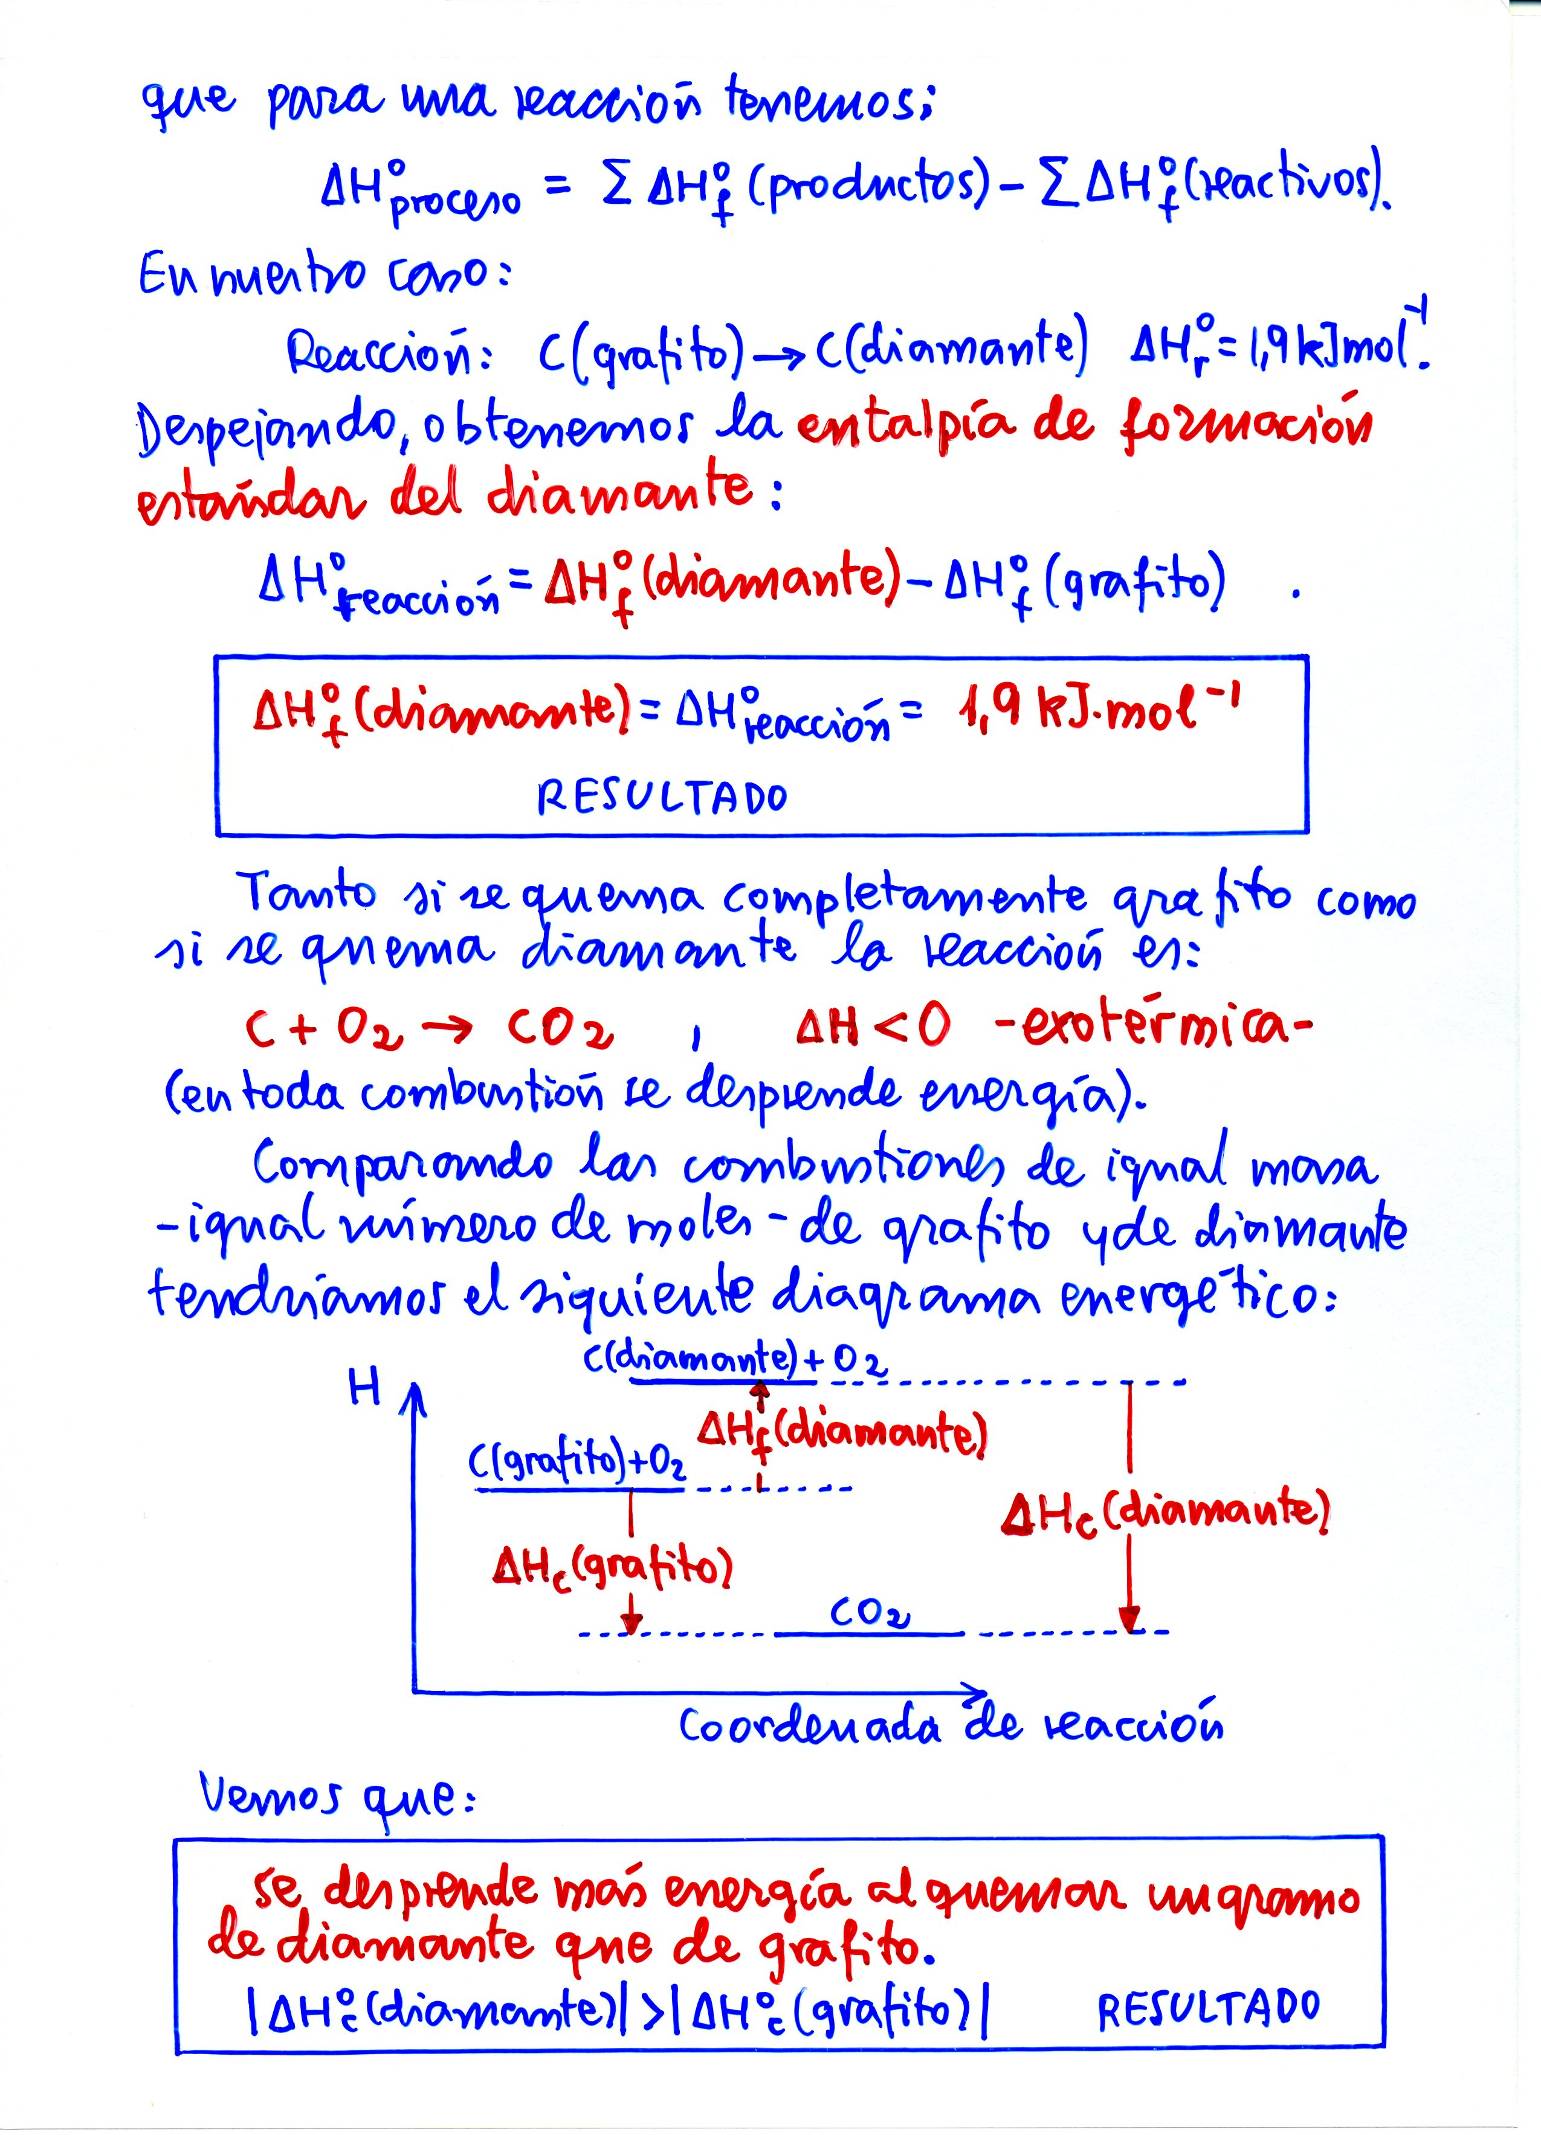 que para una reacción tenemos:
ΔH°proceso = Σ ΔH°f (productos) - Σ ΔH°f (reactivos).
En nuestro caso:
Reacción: C(grafito) → C(diamante) ΔH°r = 1,9 kJ mol⁻¹.
Despejando, obtenemos la entalpía de formación
estándar del diamante:
ΔH°reacción = ΔH°f (diamante) - ΔH°f (grafito) .
ΔH°f (diamante) = ΔH°reacción = 1,9 kJ·mol⁻¹
RESULTADO
Tanto si se quema completamente grafito como
si se quema diamante la reacción es:
C + O₂ → CO₂ , ΔH < 0 -exotérmica-
(en toda combustión se desprende energía).
Comparando las combustiones de igual masa
-igual número de moles- de grafito y de diamante
tendríamos el siguiente diagrama energético:
C(diamante) + O₂
H
ΔHf (diamante)
C(grafito) + O₂
ΔHc (diamante)
ΔHc (grafito)
CO₂
Coordenada de reacción
Vemos que:
se desprende más energía al quemar un gramo
de diamante que de grafito.
|ΔH°c (diamante)| > |ΔH°c (grafito)| RESULTADO